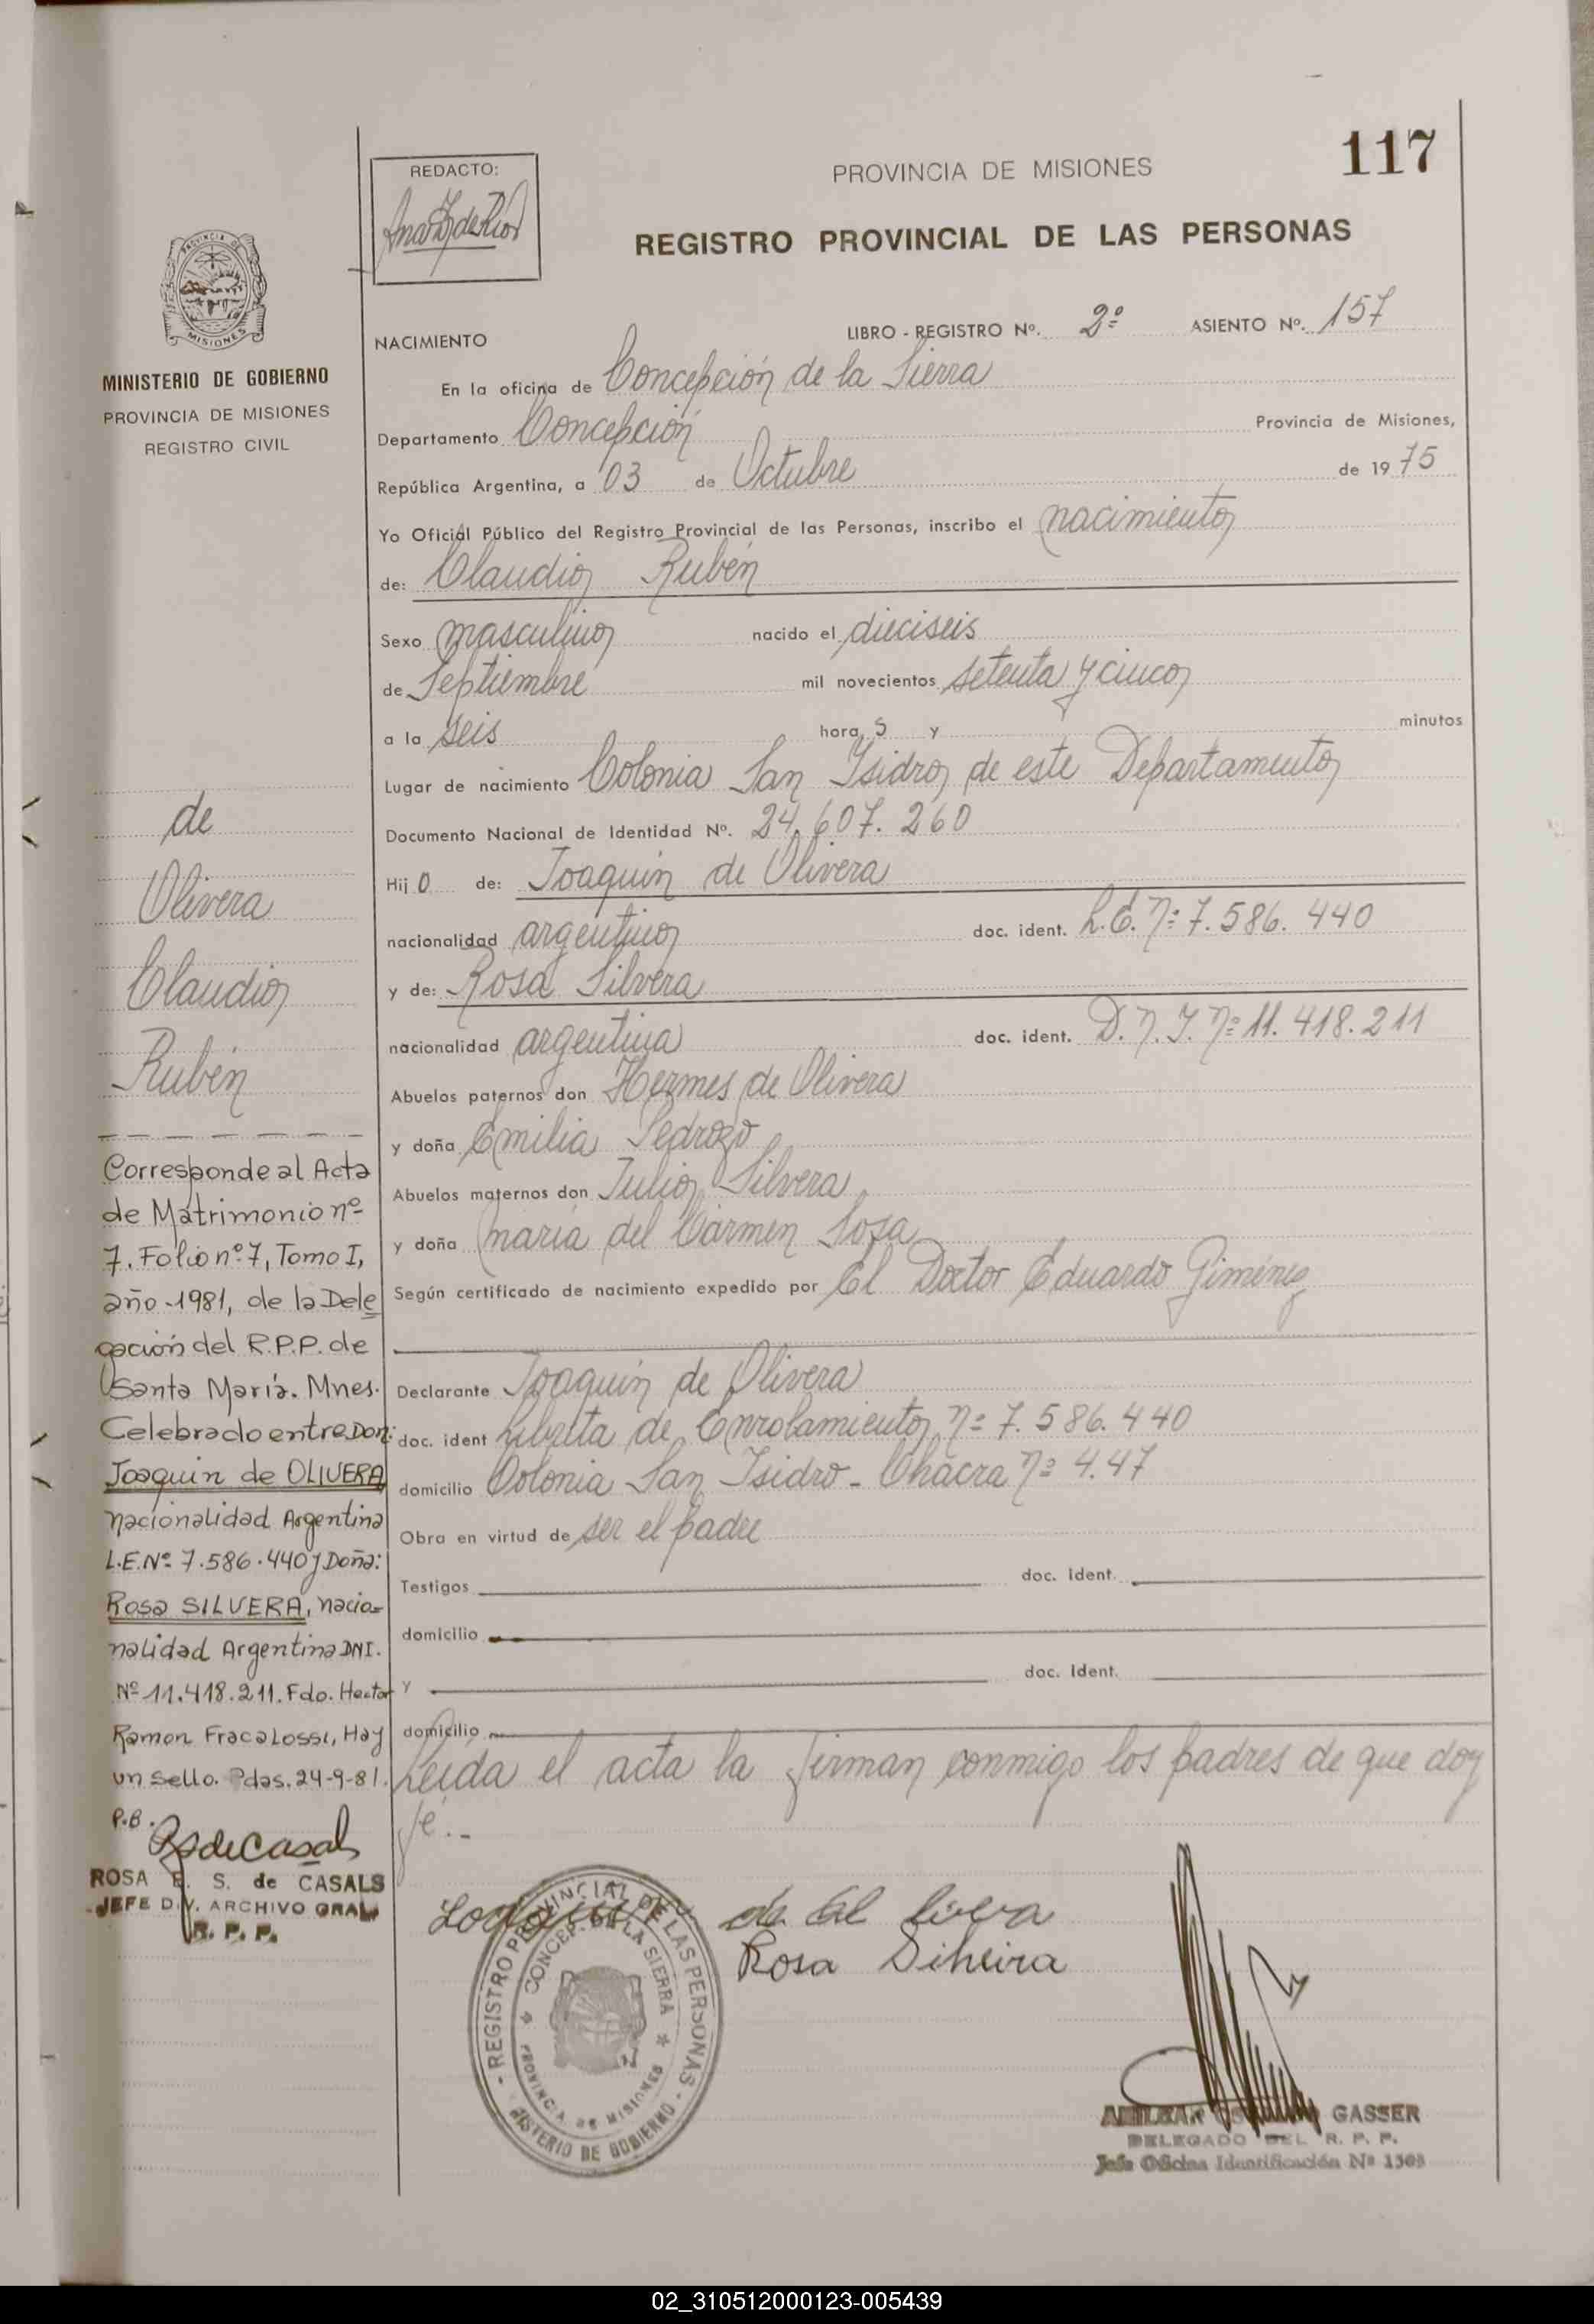 117
REDACTO:
PROVINCIA DE MISIONES
REGISTRO PROVINCIAL DE LAS PERSONAS
PROVINCIA DE
MISIONES
MINISTERIO DE GOBIERNO
PROVINCIA DE MISIONES
REGISTRO CIVIL
NACIMIENTO LIBRO - REGISTRO Nº. 2º ASIENTO Nº. 157
En la oficina de Concepción de la Sierra
Departamento Concepción Provincia de Misiones,
República Argentina, a 03 de Octubre de 1975
Yo Oficial Público del Registro Provincial de las Personas, inscribo el nacimiento
de: Claudio Rubén
Sexo masculino nacido el dieciseis
de Septiembre mil novecientos setenta y cinco
a la seis hora s y minutos
Lugar de nacimiento Colonia San Isidro, de este Departamento
Documento Nacional de Identidad Nº. 24.607.260
Hijo de: Joaquín de Olivera
nacionalidad argentino doc. ident. L.E. Nº 7.586.440
y de: Rosa Silvera
nacionalidad argentina doc. ident. D.N.I. Nº 11.418.211
Abuelos paternos don Hermes de Olivera
y doña Emilia Pedrozo
Abuelos maternos don Julio Silvera
y doña María del Cármen Sosa
Según certificado de nacimiento expedido por El Doctor Eduardo Giménez
Declarante Joaquín de Olivera
doc. ident Libreta de Enrolamiento Nº 7.586.440
domicilio Colonia San Isidro - Chacra Nº 4.47
Obra en virtud de ser el padre
Testigos doc. ident.
domicilio
y doc. ident.
domicilio
Leída el acta la firman conmigo los padres de que doy
fé.-
de
Olivera
Claudio
Rubén
Corresponde al Acta
de Matrimonio nº
7. Folio nº 7, Tomo I,
año -1981, de la Dele
gación del R.P.P. de
Santa María. Mnes.
Celebrado entre Don:
Joaquin de OLIVERA
nacionalidad Argentina
L.E.Nº 7.586.440 y Doña:
Rosa SILVERA, nacio-
nalidad Argentina DNI.
Nº 11.418.211. Fdo. Hector
Ramon Fracalossi, Hay
un sello. Pdas. 24-9-81.
P.B.
ROSA S. de CASALS
JEFE DIV. ARCHIVO GRAL.
R. P. P.
Rosa
- REGISTRO PROVINCIAL DE LAS PERSONAS -
MINISTERIO DE GOBIERNO
CONCEP. DE LA SIERRA
PROVINCIA DE MISIONES
GASSER
DELEGADO DEL R. P. P.
Jefe Oficina Identificación Nº
02_310512000123-005439